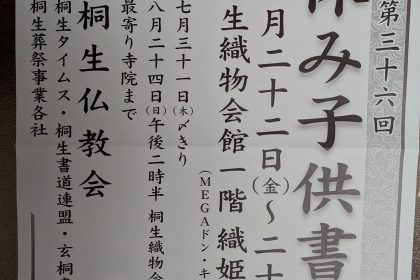 第三十六回
休み子供書
月二十二日(金)〜二十
生織物会館一階 織姫
(MEGAドン・キ
七月三十一日(木)〆きり
八月二十四日(日)午後二時半 桐生織物会
最寄り寺院まで
桐生仏教会
桐生タイムス・桐生書道連盟・玄桐
桐生葬祭事業各社